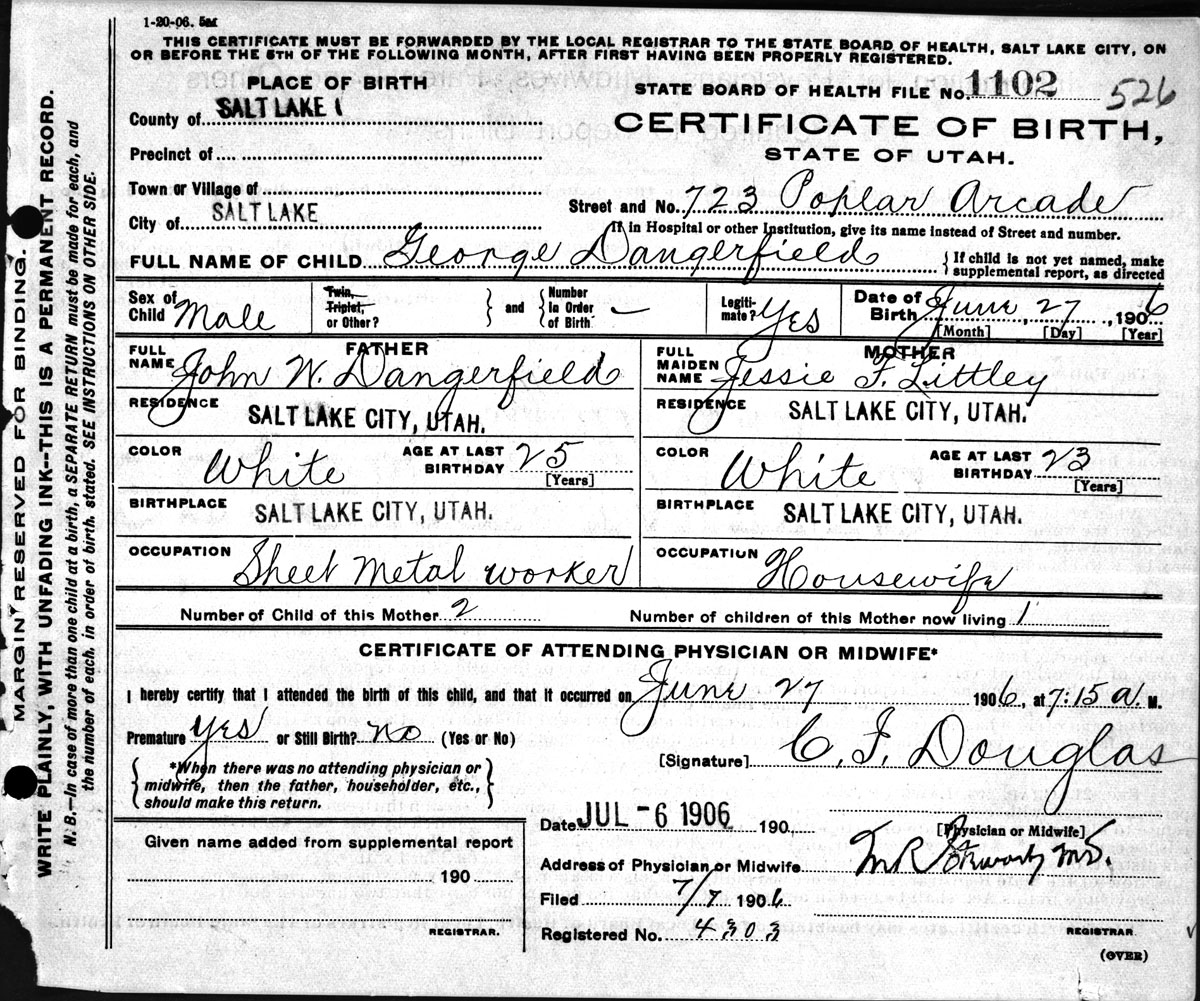 1-20-06. 5M
THIS CERTIFICATE MUST BE FORWARDED BY THE LOCAL REGISTRAR TO THE STATE BOARD OF HEALTH, SALT LAKE CITY, ON
OR BEFORE THE 5TH OF THE FOLLOWING MONTH, AFTER FIRST HAVING BEEN PROPERLY REGISTERED.
PLACE OF BIRTH
STATE BOARD OF HEALTH FILE No. 1102 526
County of SALT LAKE 1
CERTIFICATE OF BIRTH,
STATE OF UTAH.
Precinct of
Town or Village of
Street and No. 723 Poplar Arcade
City of SALT LAKE
If in Hospital or other Institution, give its name instead of Street and number.
FULL NAME OF CHILD George Dangerfield
If child is not yet named, make
supplemental report, as directed
Sex of Child Male
Twin, Triplet, or Other?
and
Number In Order of Birth –
Legitimate? Yes
Date of Birth June, 27, 1906
[Month] [Day] [Year]
FATHER
FULL NAME John W. Dangerfield
RESIDENCE SALT LAKE CITY, UTAH.
COLOR White
AGE AT LAST BIRTHDAY 25
[Years]
BIRTHPLACE SALT LAKE CITY, UTAH.
OCCUPATION Sheet Metal worker
MOTHER
FULL MAIDEN NAME Jessie F. Littley
RESIDENCE SALT LAKE CITY, UTAH.
COLOR White
AGE AT LAST BIRTHDAY 23
[Years]
BIRTHPLACE SALT LAKE CITY, UTAH.
OCCUPATION Housewife
Number of Child of this Mother 2
Number of children of this Mother now living 1
CERTIFICATE OF ATTENDING PHYSICIAN OR MIDWIFE*
I hereby certify that I attended the birth of this child, and that it occurred on June 27 1906, at 7:15 a. M.
Premature yes or Still Birth? no (Yes or No)
[Signature] C. F. Douglas
*When there was no attending physician or
midwife, then the father, householder, etc.,
should make this return.
Date JUL - 6 1906 190
[Physician or Midwife]
Given name added from supplemental report
190
REGISTRAR.
Address of Physician or Midwife
Filed 7/7 1906
Registered No. 4303
REGISTRAR.
(OVER)
MARGIN RESERVED FOR BINDING.
WRITE PLAINLY, WITH UNFADING INK--THIS IS A PERMANENT RECORD.
N. B.—In case of more than one child at a birth, a SEPARATE RETURN must be made for each, and
the number of each, in order of birth, stated. SEE INSTRUCTIONS ON OTHER SIDE.